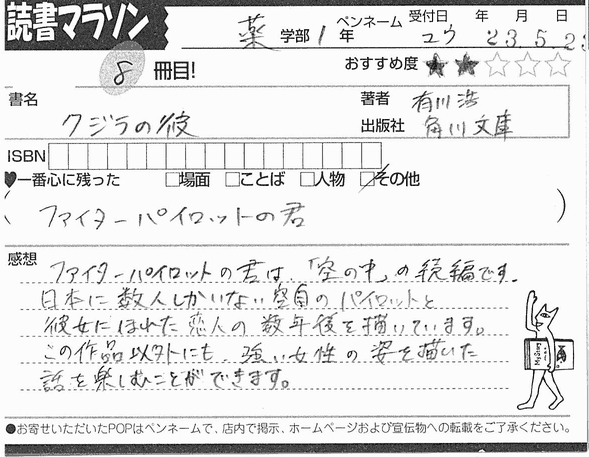 読書マラソン
薬 学部 1 年 ペンネーム ユウ 受付日 年 月 日 23.5.2
8 冊目! おすすめ度 ★★☆☆☆
書名 クジラの彼
著者 有川浩
出版社 角川文庫
ISBN
♥一番心に残った □場面 □ことば □人物 ☑その他
(ファイターパイロットの君)
感想
ファイターパイロットの君は、「空の中」の続編です。
日本に数人しかいない空自のパイロットと
彼女にほれた恋人の数年後を描いています。
この作品以外にも、強い女性の姿を描いた
話を楽しむことができます。
●お寄せいただいたPOPはペンネームで、店内で掲示、ホームページおよび宣伝物への転載をご了承ください。